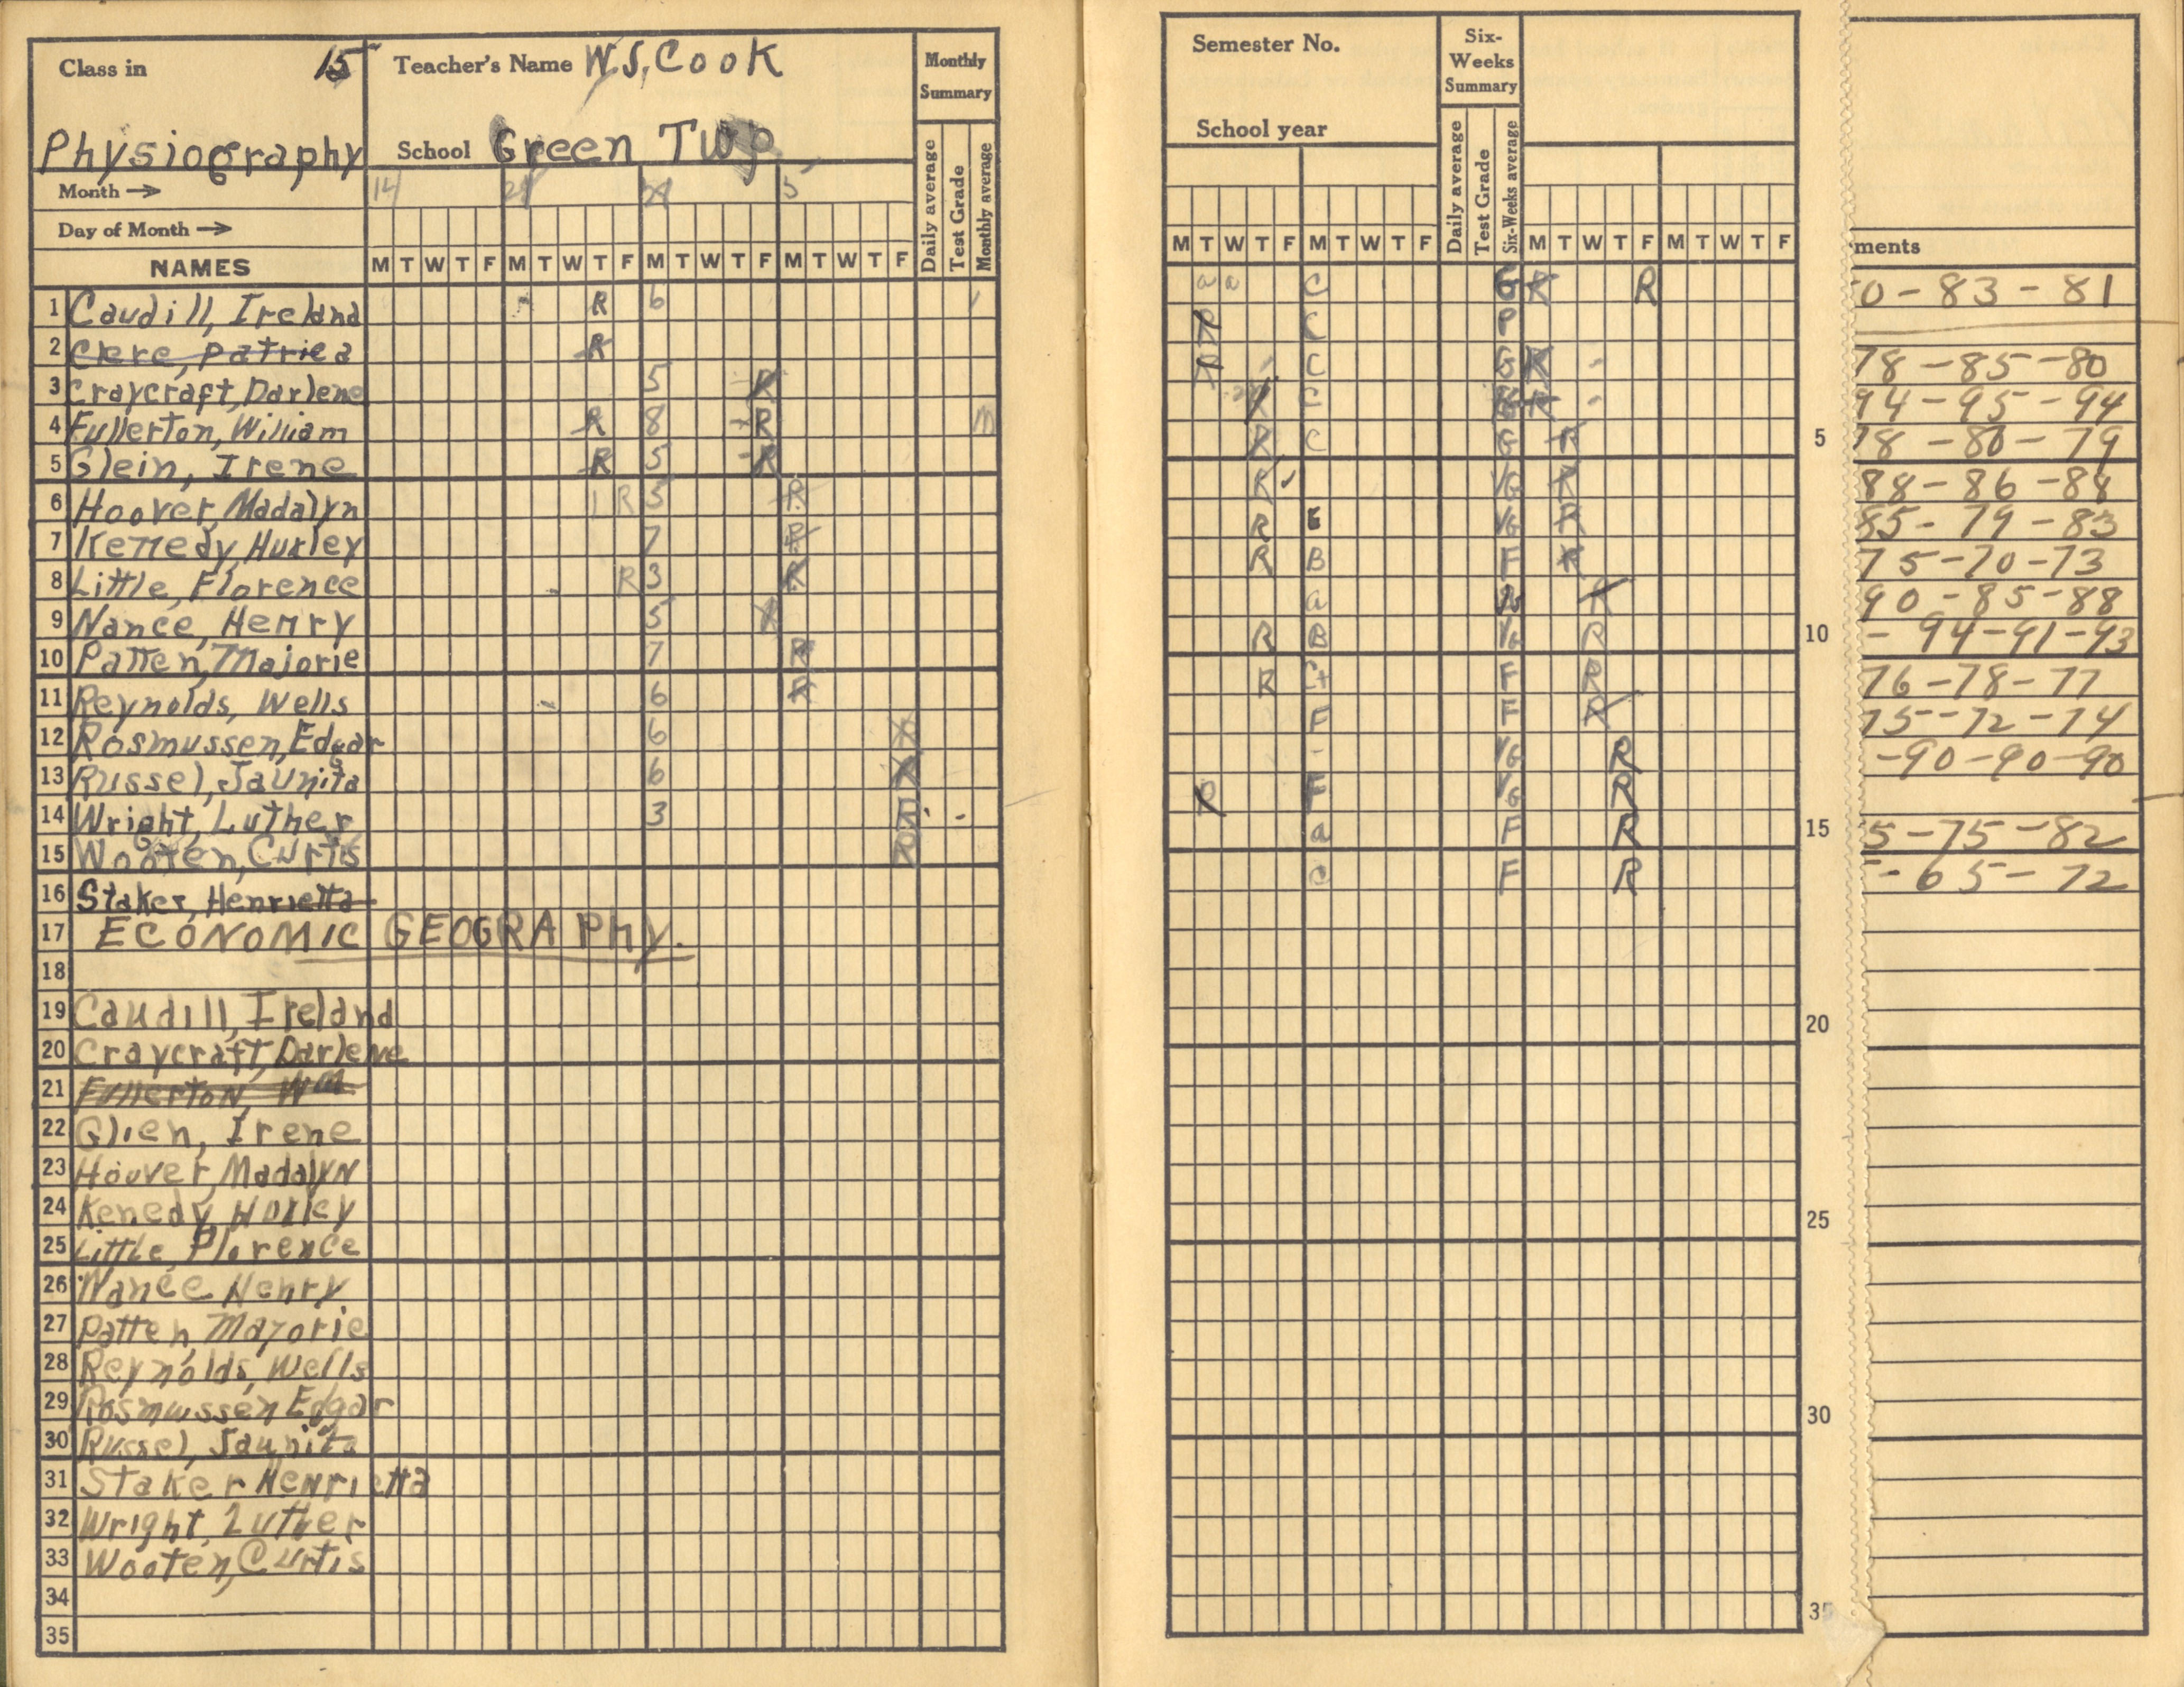 Class in 15 Teacher's Name W.S. Cook Monthly Summary
Physiography School Green Twp.
Month → 14 5
Day of Month → Daily average Test Grade Monthly average
NAMES M T W T F M T W T F M T W T F M T W T F
1 Caudill, Ireland R 6
2 Clere, Patrica R
3 Craycraft, Darlene 5 R
4 Fullerton, William R 8 R M
5 Glein, Irene R 5 R
6 Hoover, Madalyn R 5 R
7 Kenedy, Huxley 7 R
8 Little, Florence R 3 R
9 Nance, Henry 5 R
10 Patten, Majorie 7 R
11 Reynolds, Wells 6 R
12 Rosmussen, Edgar 6
13 Russel, Jaunita 6 R
14 Wright, Luther 3 R
15 Wooten, Curtis R
16 Staker, Henrietta
17 ECONOMIC GEOGRAPhy.
18
19 Caudill, Ireland
20 Craycraft, Darlene
21 Fullerton, Wm
22 Glien, Irene
23 Hoover, Madalyn
24 Kenedy, Huxley
25 Little, Florence
26 Nance Henry
27 Patten, Majorie
28 Reynolds, Wells
29 Rosmussen Edgar
30 Russel, Jaunita
31 Staker Henrietta
32 Wright, Luther
33 Wooten, Curtis
34
35
Semester No. Six-Weeks Summary
School year
Daily average Test Grade Six-Weeks average
M T W T F M T W T F M T W T F M T W T F
a a C G R R
R C P
R C G R
C R
R C G R 5
R VG R
R VG R
R B F R
a R
R B VG R 10
R C+ F R
F F R
- VG R
R F VG R
a F R 15
c F R
20
25
30
35
ments
0 - 83 - 81
78 - 85 - 80
94 - 95 - 94
78 - 80 - 79
88 - 86 - 88
85 - 79 - 83
75 - 70 - 73
90 - 85 - 88
- 94 - 91 - 93
76 - 78 - 77
75 - 72 - 74
- 90 - 90 - 90
5 - 75 - 82
- 65 - 72